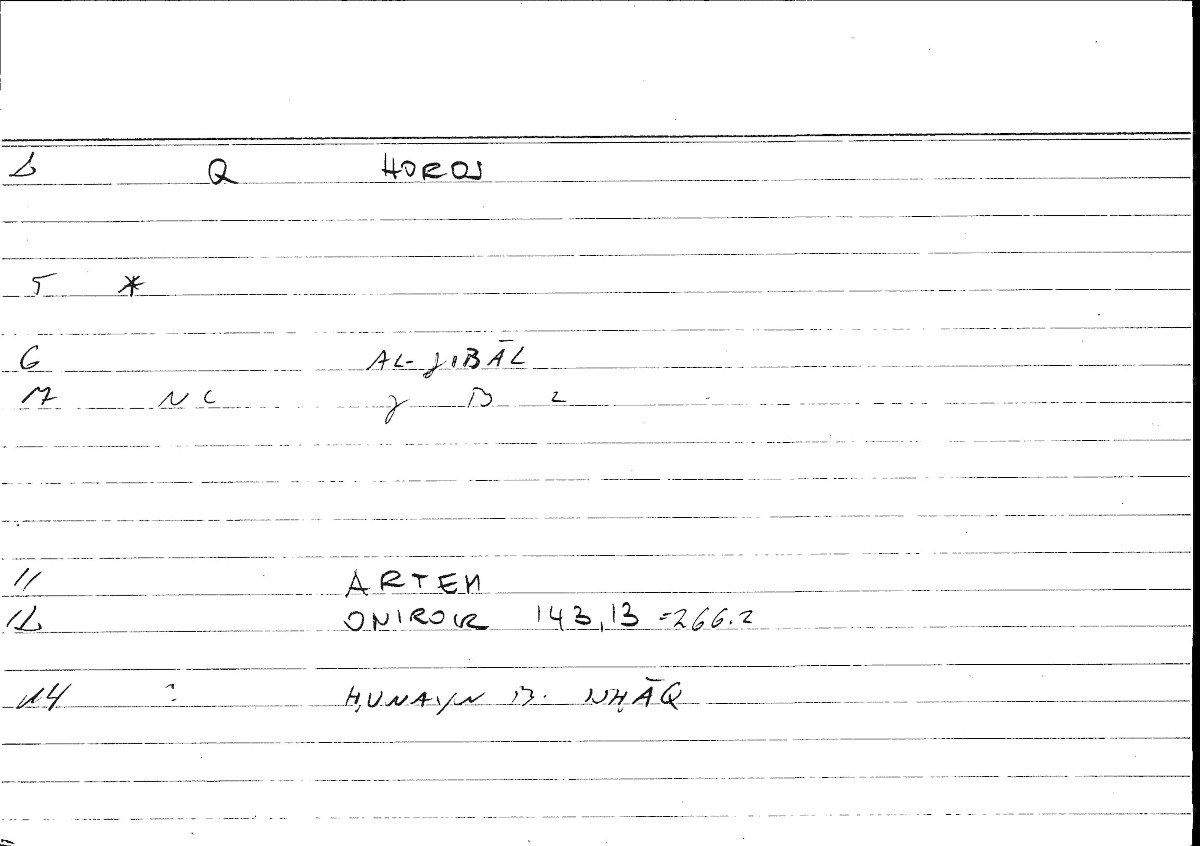 2 Q HOROS
5 *
6 AL-JIBĀL
7 NC J B L
11 ARTEM
12 ONIROCR 143,13 =266.2
14 : ḤUNAYN B. ISḤĀQ